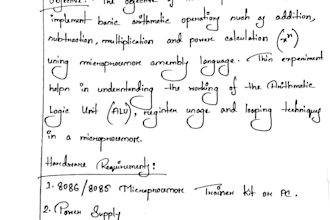 Objective: The objective of
implement basic arithmetic operations such as addition,
subtraction, multiplication and power calculation (x^n)
using microprocessor assembly language. This experiment
helps in understanding the working of the Arithmetic
Logic Unit (ALU), register usage and looping techniques
in a microprocessor.
Hardware Requirements:
1. 8086/8085 Microprocessor Trainer kit or PC.
2. Power Supply